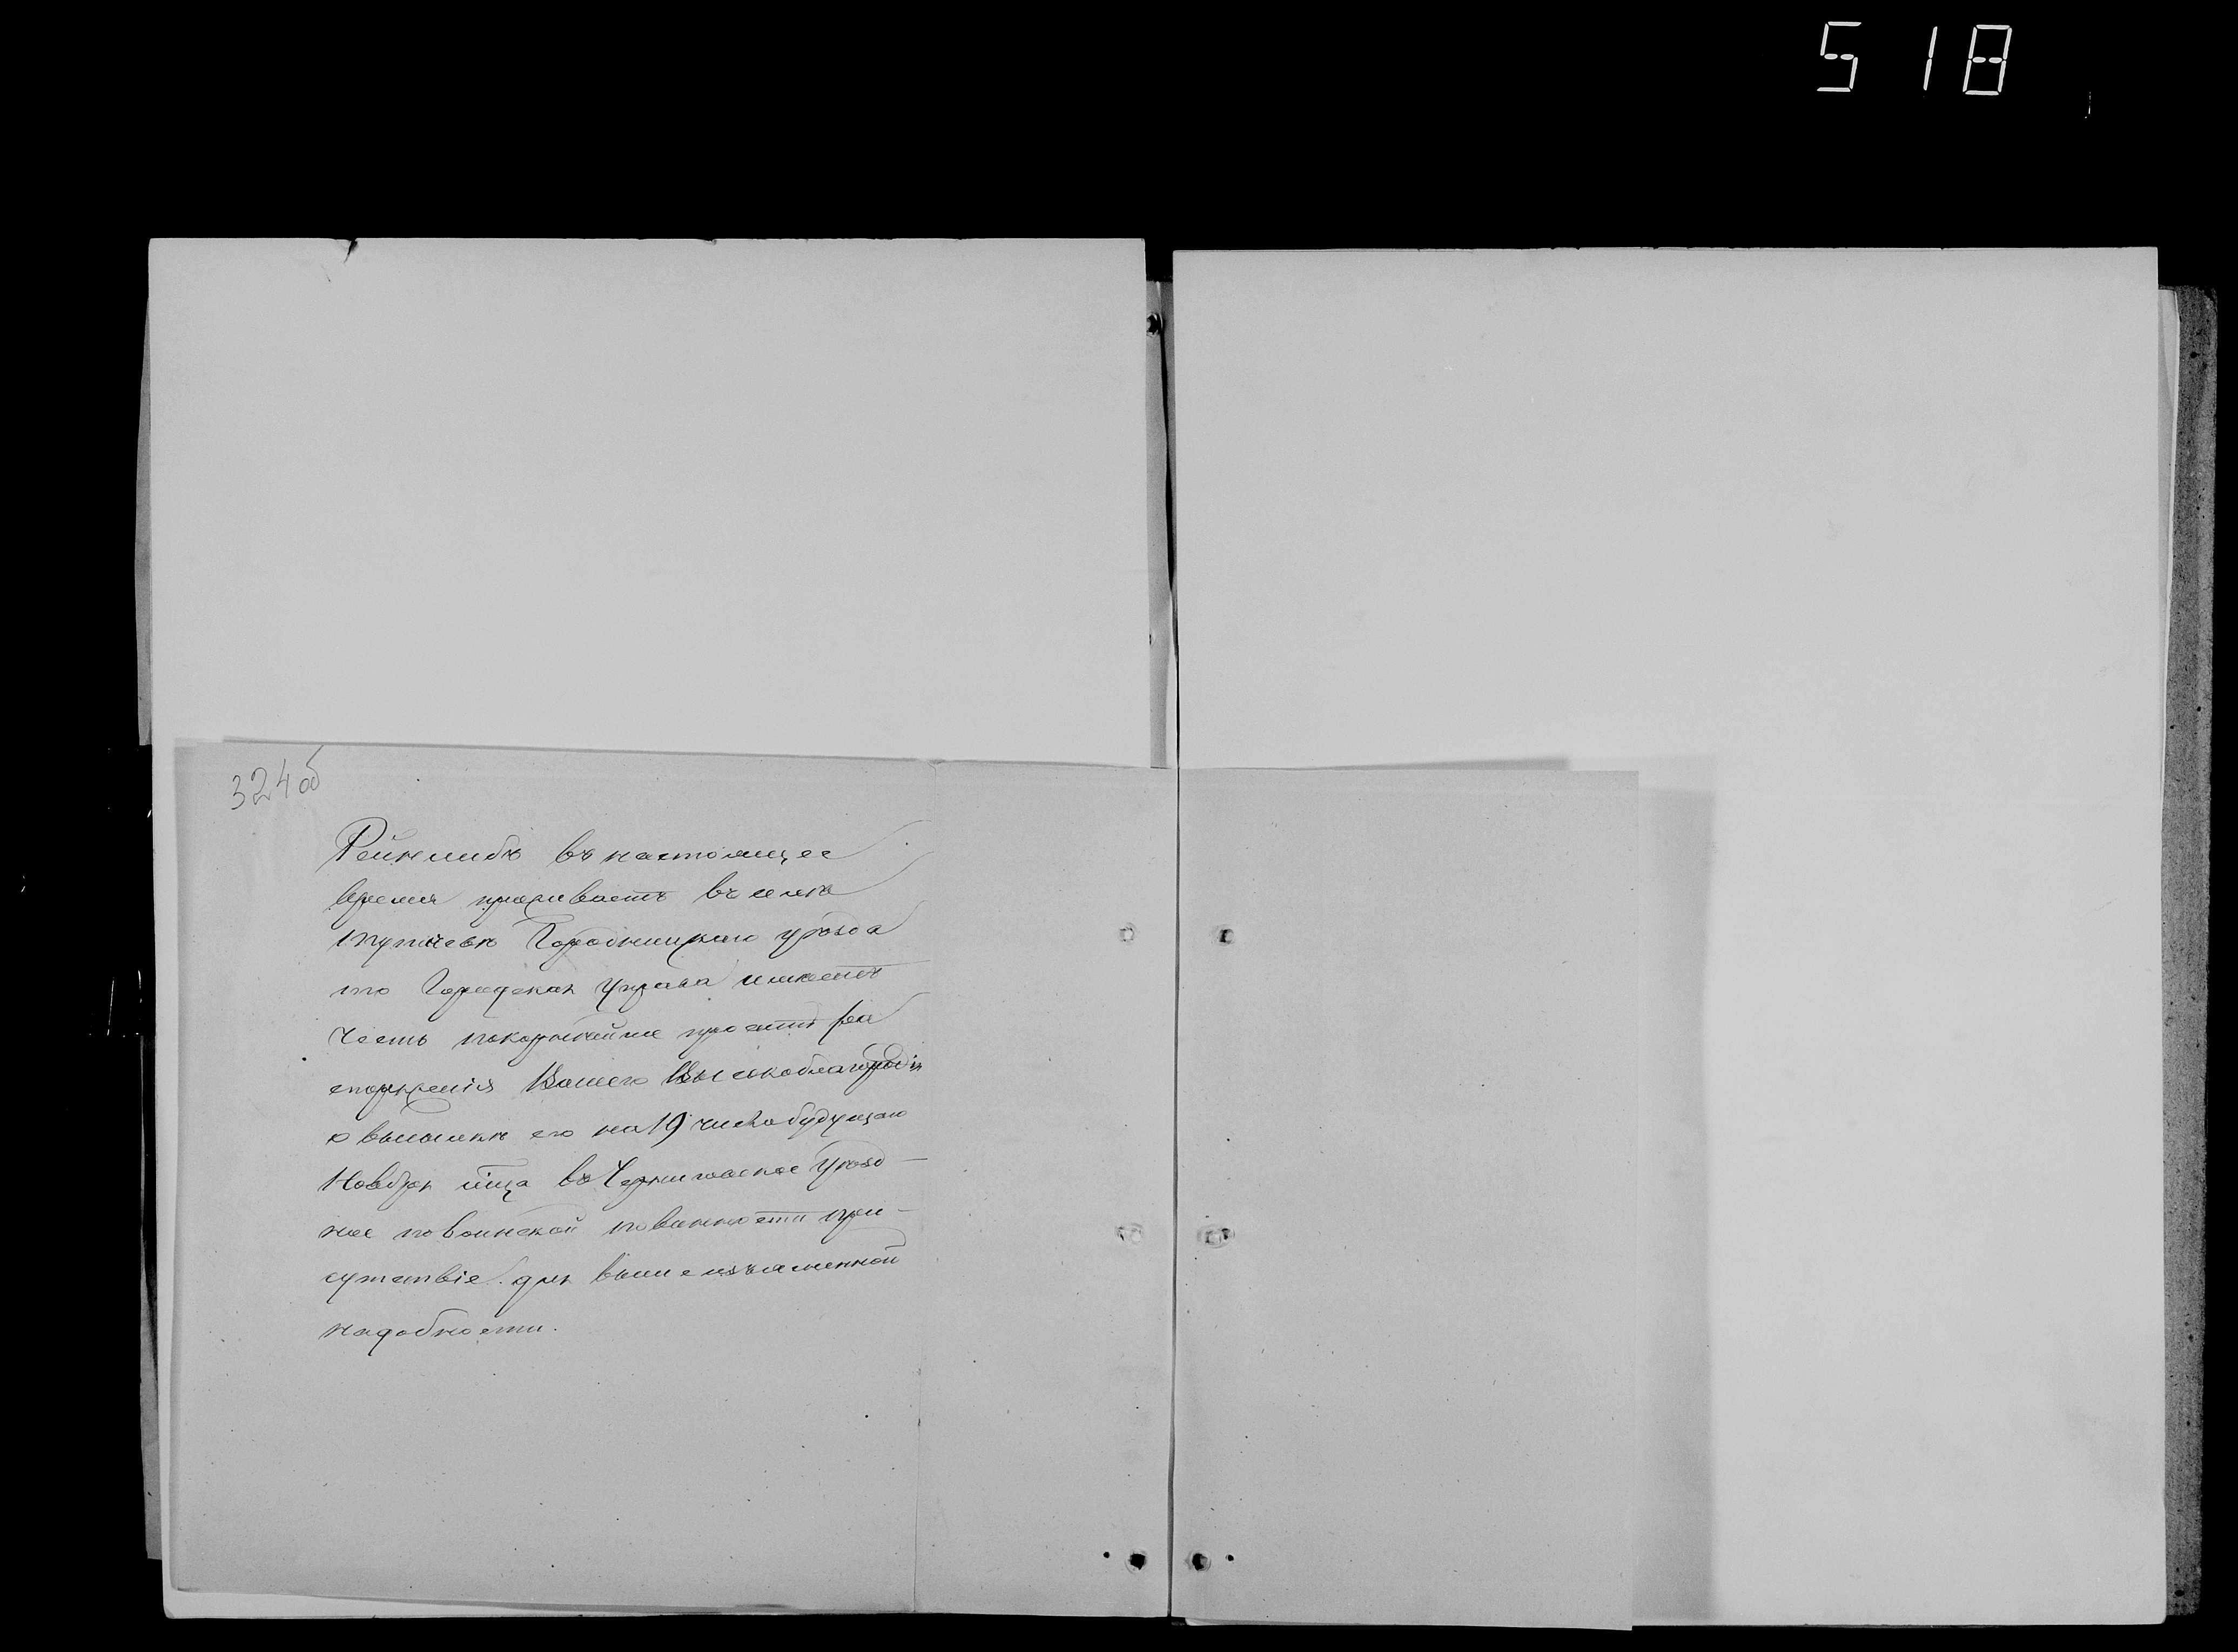 518
324 об
въ настоящее
время проживаетъ въ мѣст.
Тупичевѣ Городницкаго уѣзда
то Городская Управа имѣетъ
честь покорнѣйше проситъ рас
поряженія Вашего Высокоблагородія
о высылкѣ его на 19 числа будущаго
Ноября м-ца въ Черниговское Уѣзд-
ное по воинской повинности при-
сутствіе для вышеизъясненной
надобности.